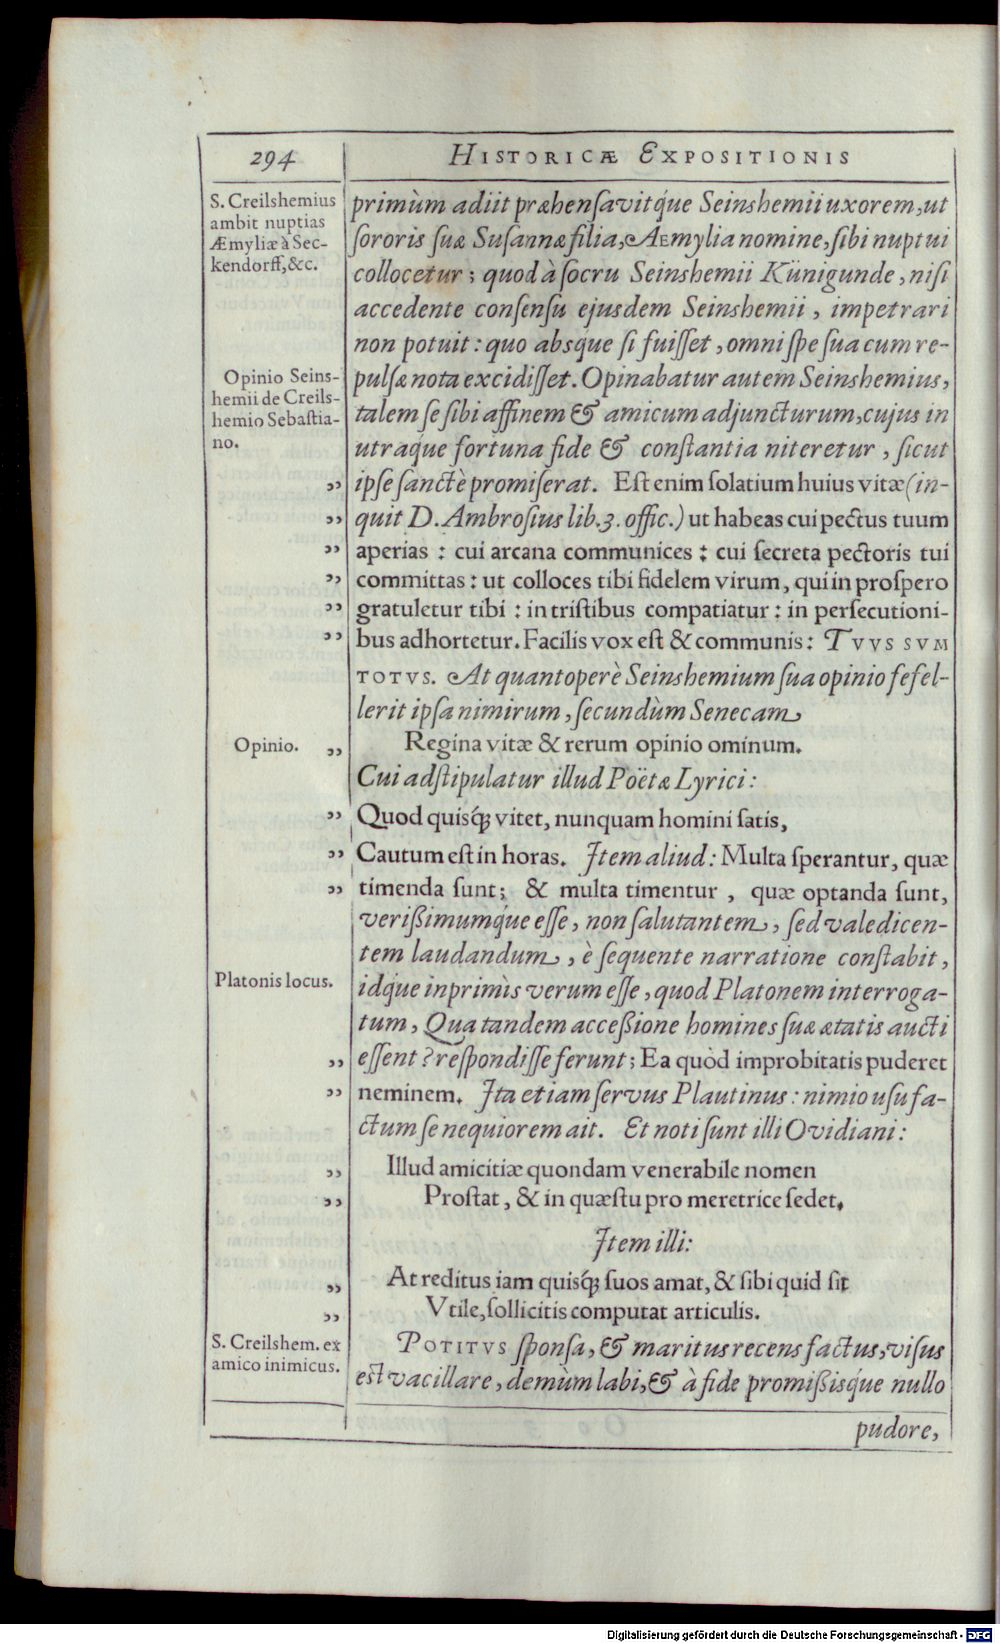 294
HISTORICÆ EXPOSITIONIS
S. Creilshemius
ambit nuptias
Æmyliæ à Sec-
kendorff, &c.
primùm adiit præhensavitq́ue Seinshemii uxorem, ut
sororis suæ Susannæ filia, Aemylia nomine, sibi nuptui
collocetur; quod à socru Seinshemii Künigunde, nisi
accedente consensu ejusdem Seinshemii, impetrari
non potuit: quo absque si fuisset, omni spe sua cum re-
Opinio Seins-
hemii de Creils-
hemio Sebastia-
no.
pulsæ nota excidisset. Opinabatur autem Seinshemius,
talem se sibi affinem & amicum adjuncturum, cujus in
utraque fortuna fide & constantia niteretur, sicut
„ ipse sanctè promiserat. Est enim solatium huius vitæ (in-
„ quit D. Ambrosius lib. 3. offic.) ut habeas cui pectus tuum
„ aperias: cui arcana communices: cui secreta pectoris tui
„ committas: ut colloces tibi fidelem virum, qui in prospero
„ gratuletur tibi: in tristibus compatiatur: in persecutioni-
„ bus adhortetur. Facilis vox est & communis: TVVS SVM
TOTVS. At quantoperè Seinshemium sua opinio fefel-
lerit ipsa nimirum, secundùm Senecam
Opinio.
„ Regina vitæ & rerum opinio ominum.
Cui adstipulatur illud Poëtæ Lyrici:
„ Quod quisq; vitet, nunquam homini satis,
„ Cautum est in horas. Item aliud: Multa sperantur, quæ
„ timenda sunt; & multa timentur, quæ optanda sunt,
verißimumq́ue esse, non salutantem, sed valedicen-
tem laudandum, è sequente narratione constabit,
Platonis locus.
idq́ue inprimìs verum esse, quod Platonem interroga-
tum, Qua tandem acceßione homines suæ ætatis aucti
„ essent? respondisse ferunt; Ea quòd improbitatis puderet
„ neminem. Ita etiam servus Plautinus: nimio usu fa-
ctum se nequiorem ait. Et noti sunt illi Ovidiani:
„ Illud amicitiæ quondam venerabile nomen
„ Prostat, & in quæstu pro meretrice sedet.
Item illi:
„ At reditus iam quisq; suos amat, & sibi quid sit
„ Vtile, sollicitis computat articulis.
S. Creilshem. ex
amico inimicus.
POTITVS sponsa, & maritus recens factus, visus
est vacillare, demùm labi, & à fide promißisq́ue nullo
pudore,
Digitalisierung gefördert durch die Deutsche Forschungsgemeinschaft - DFG